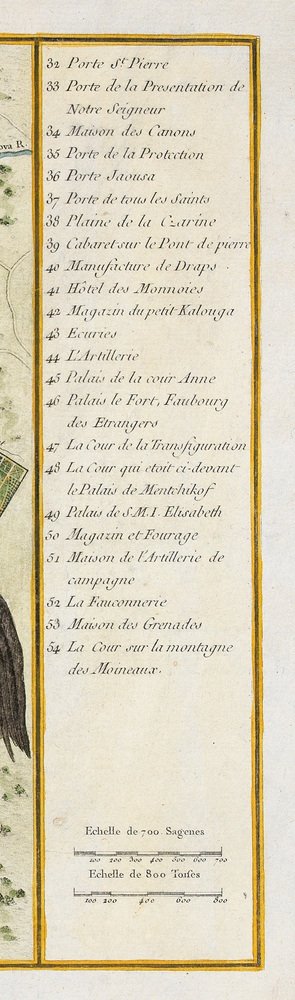 ova R.
32 Porte St. Pierre
33 Porte de la Presentation de
Notre Seigneur
34 Maison des Canons
35 Porte de la Protection
36 Porte Jaousa
37 Porte de tous les Saints
38 Plaine de la Czarine
39 Cabaret sur le Pont de pierre
40 Manufacture de Draps .
41 Hôtel des Monnoies
42 Magazin du petit Kalouga
43 Ecuries
44 L'Artillerie
45 Palais de la cour Anne
46 Palais le Fort, Faubourg
des Etrangers
47 La Cour de la Transfiguration
48 La Cour qui etoit ci-devant
le Palais de Mentchikof
49 Palais de S.M.I. Elisabeth
50 Magazin et Fourage
51 Maison de l'Artillerie de
campagne
52 La Fauconnerie
53 Maison des Grenades
54 La Cour sur la montagne
des Moineaux.
Echelle de 700 Sagenes
100 200 300 400 500 600 700
Echelle de 800 Toises
100 200 400 600 800